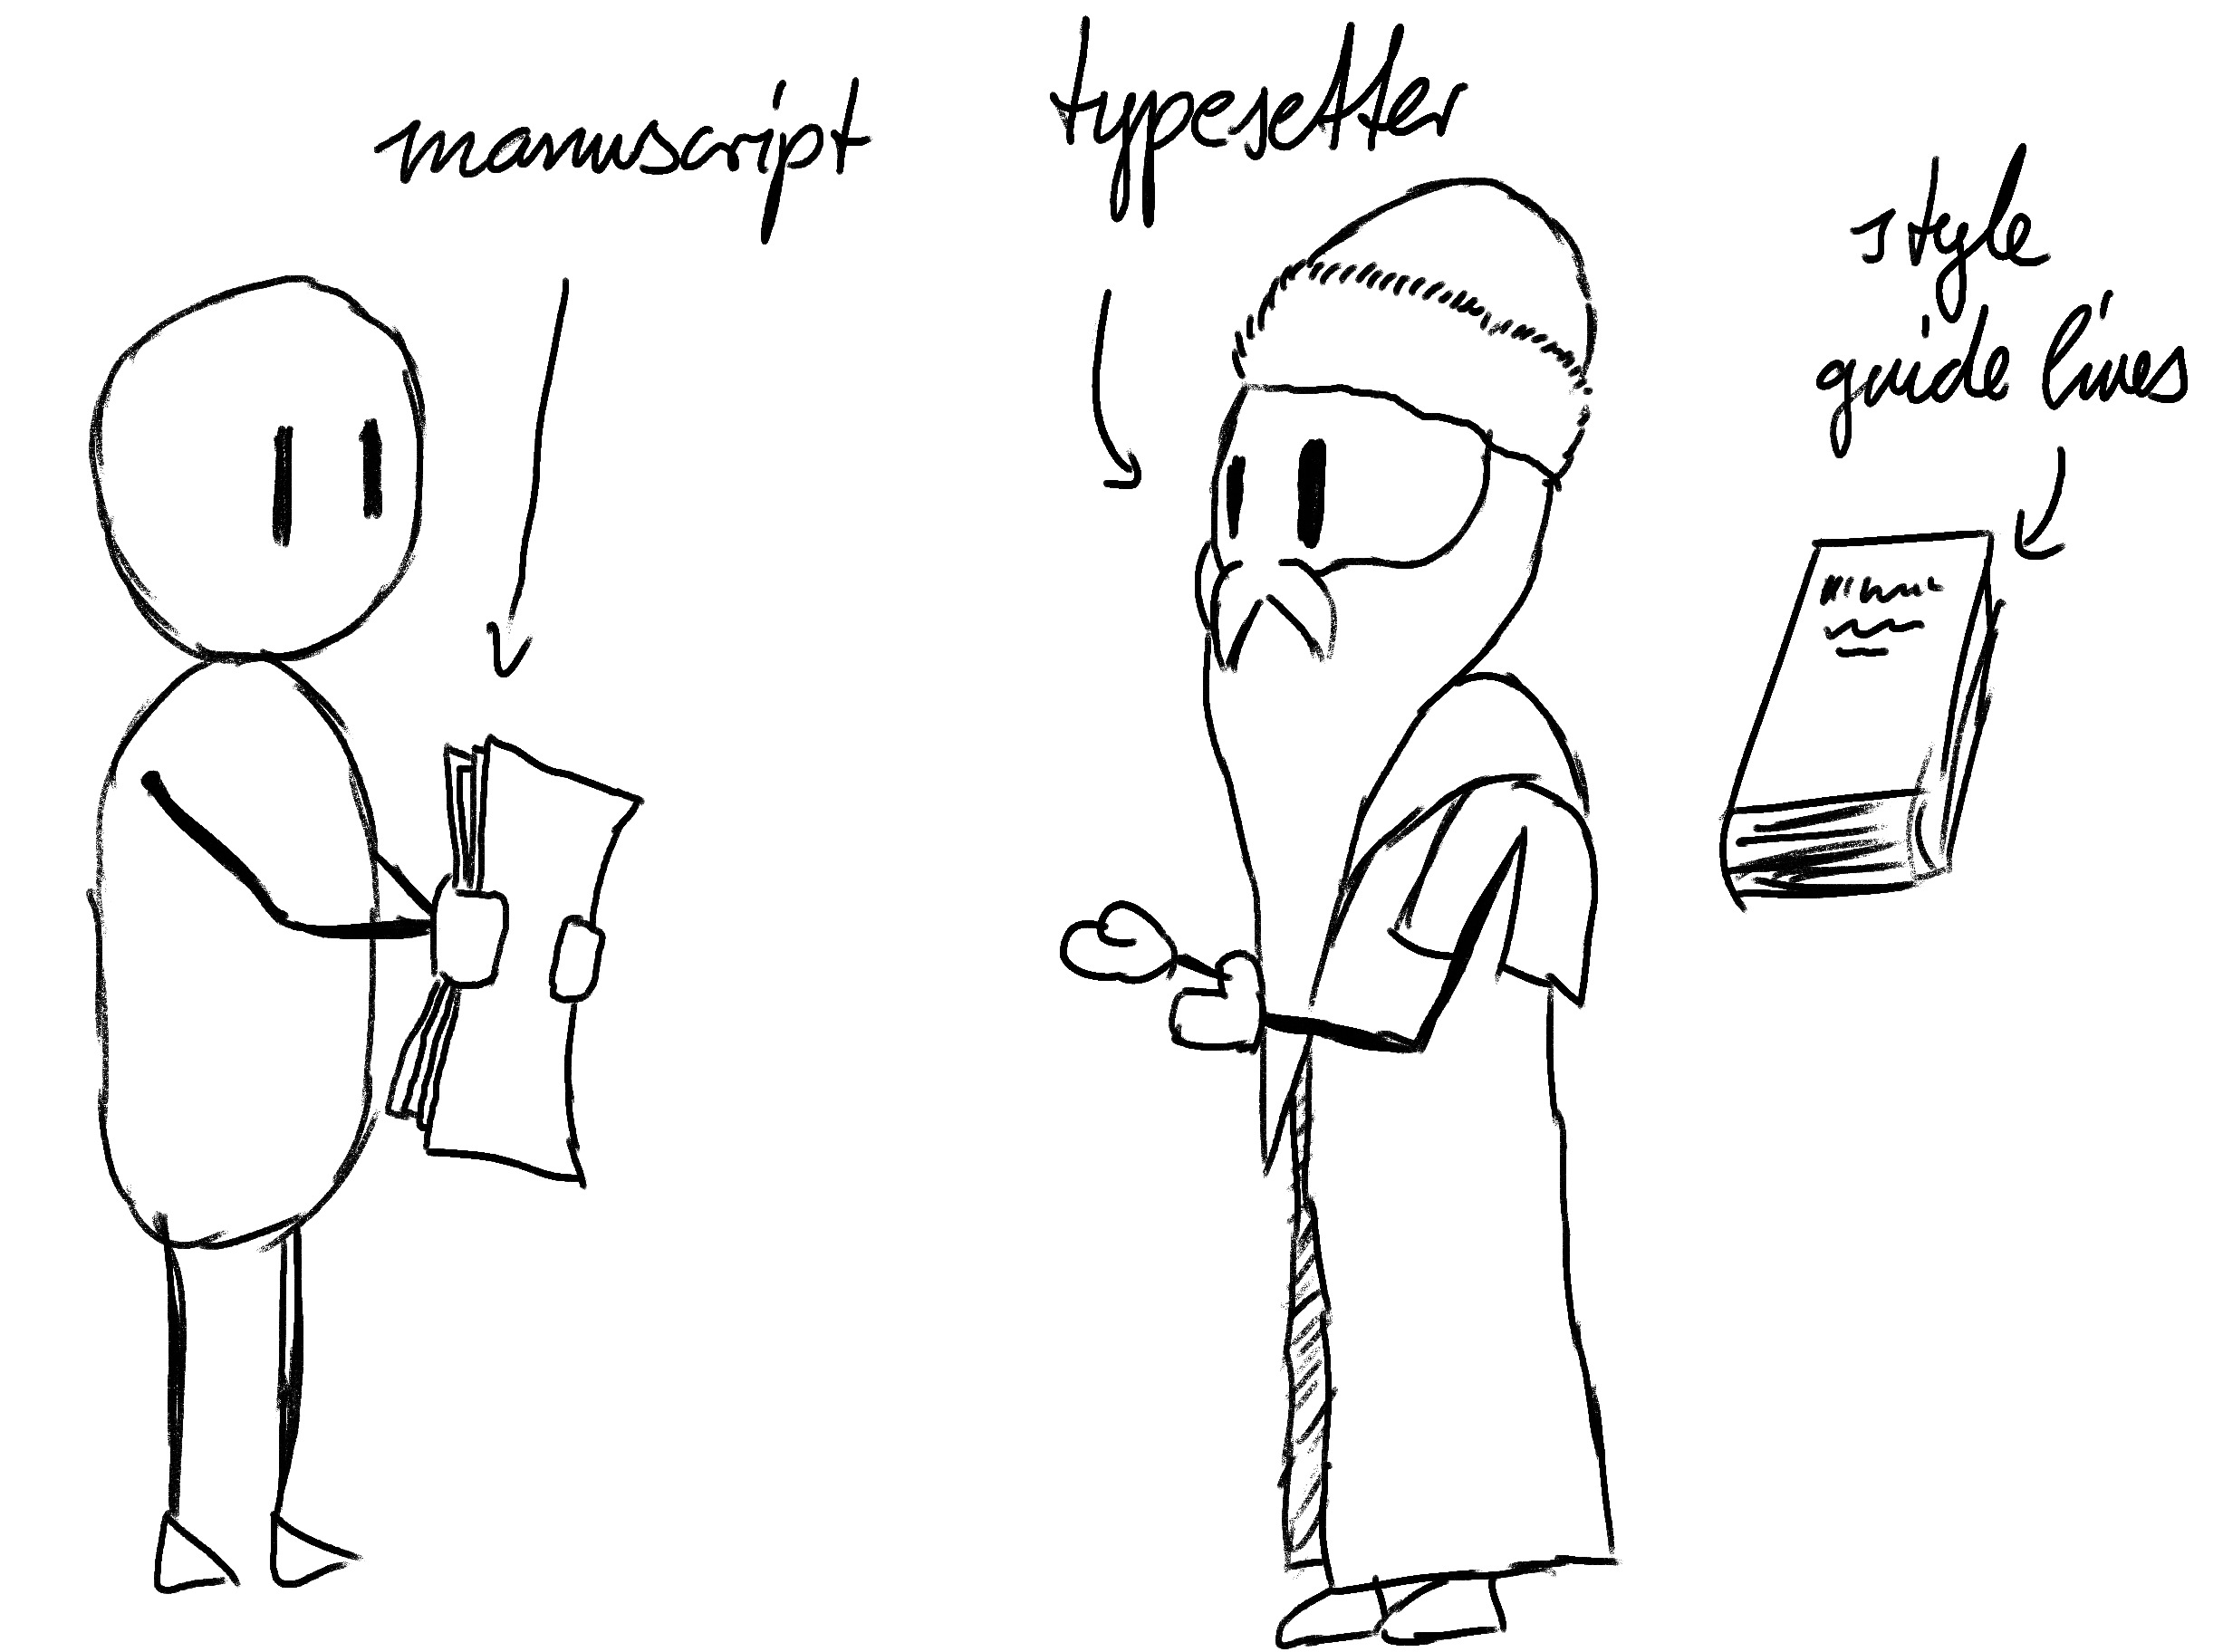 manuscript
typesetter
style
guide lines